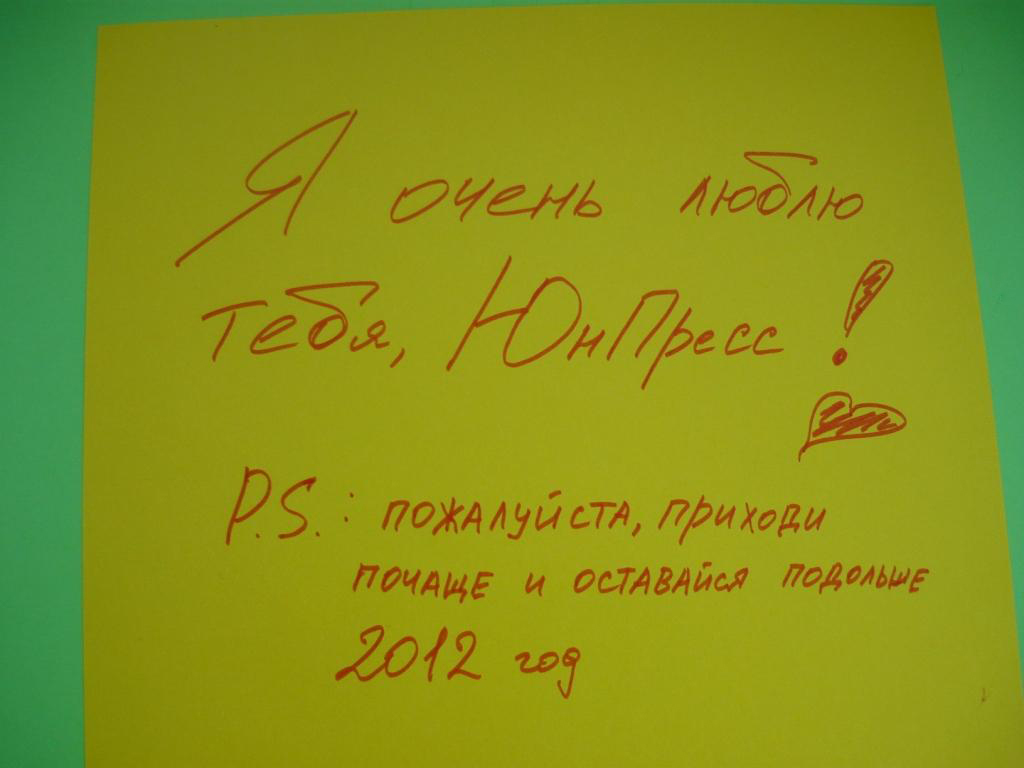 Я очень люблю
тебя, ЮнПресс!
P.S.: пожалуйста, приходи
почаще и оставайся подольше
2012 год